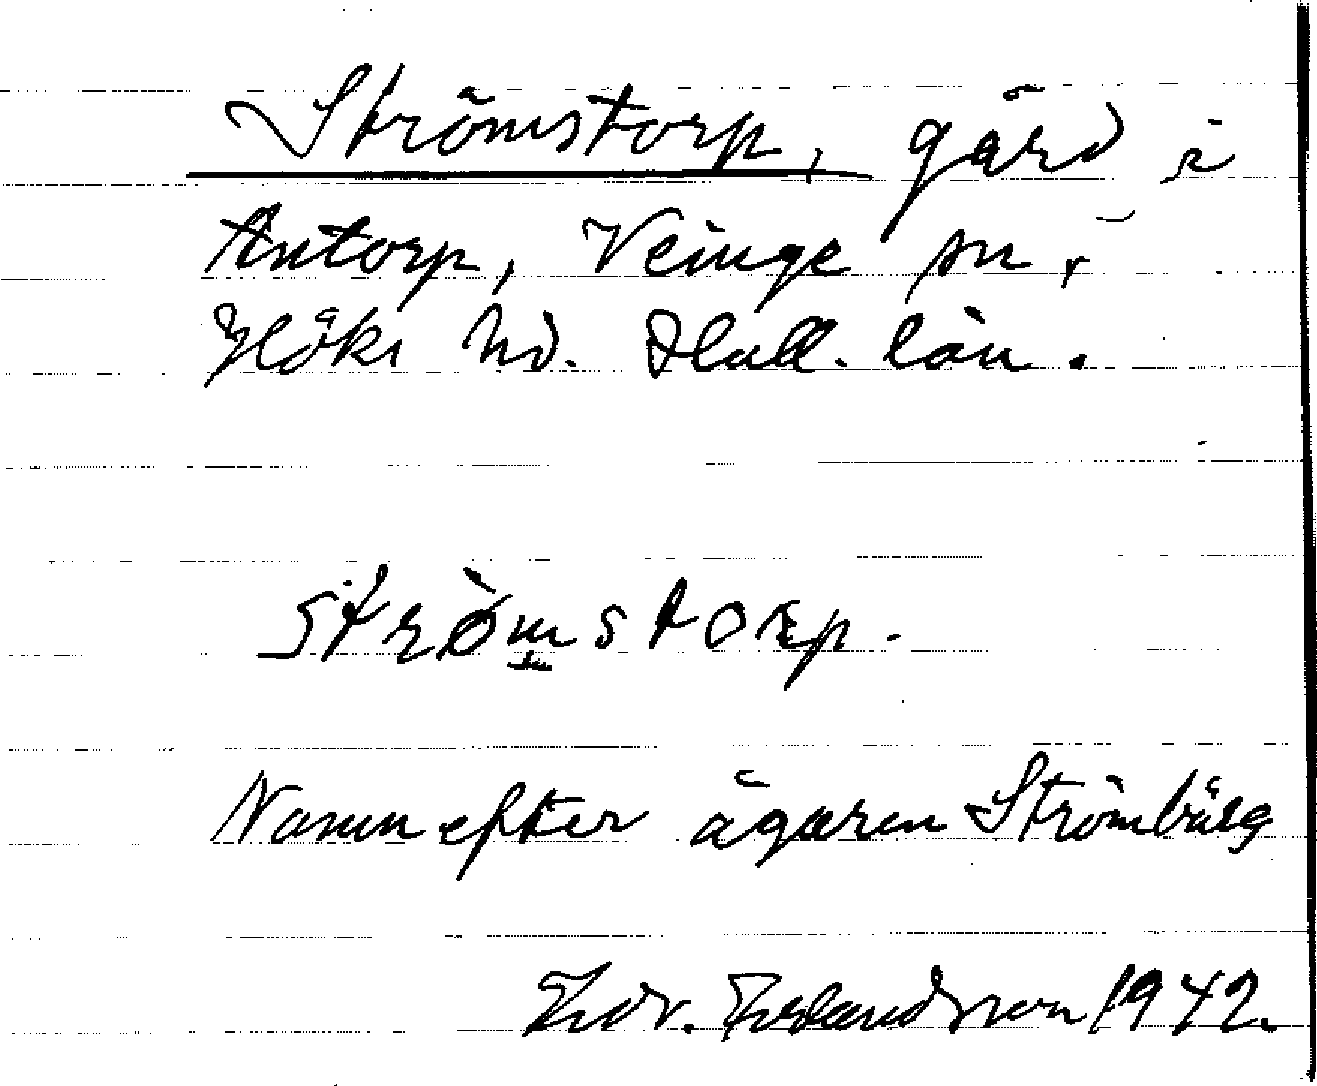 Strömstorp, gård i
Antorp, Veinge sn,
Höks hd. Hall. län.
strømstorp.
Namn efter ägaren Strömberg
Edv. Erlandsson 1942.